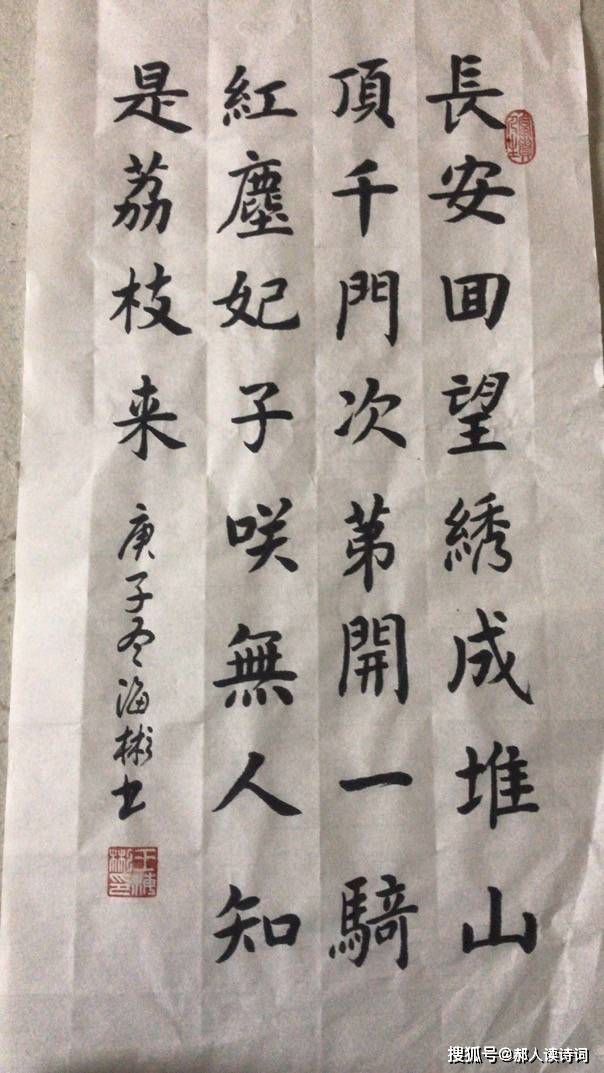 長安回望綉成堆山
頂千門次第開一騎
紅塵妃子咲無人知
是荔枝来
庚子冬海彬书
王海彬印
搜狐号@郝人读诗词